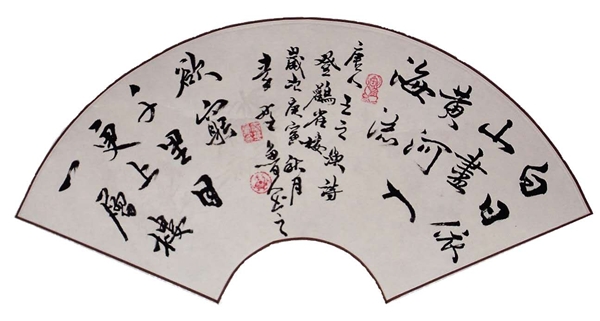 白日依
山盡
黄河入
海流
欲窮
千里目
更上
一層樓
唐人王之渙詩
登鸛雀樓
歲次庚寅秋月